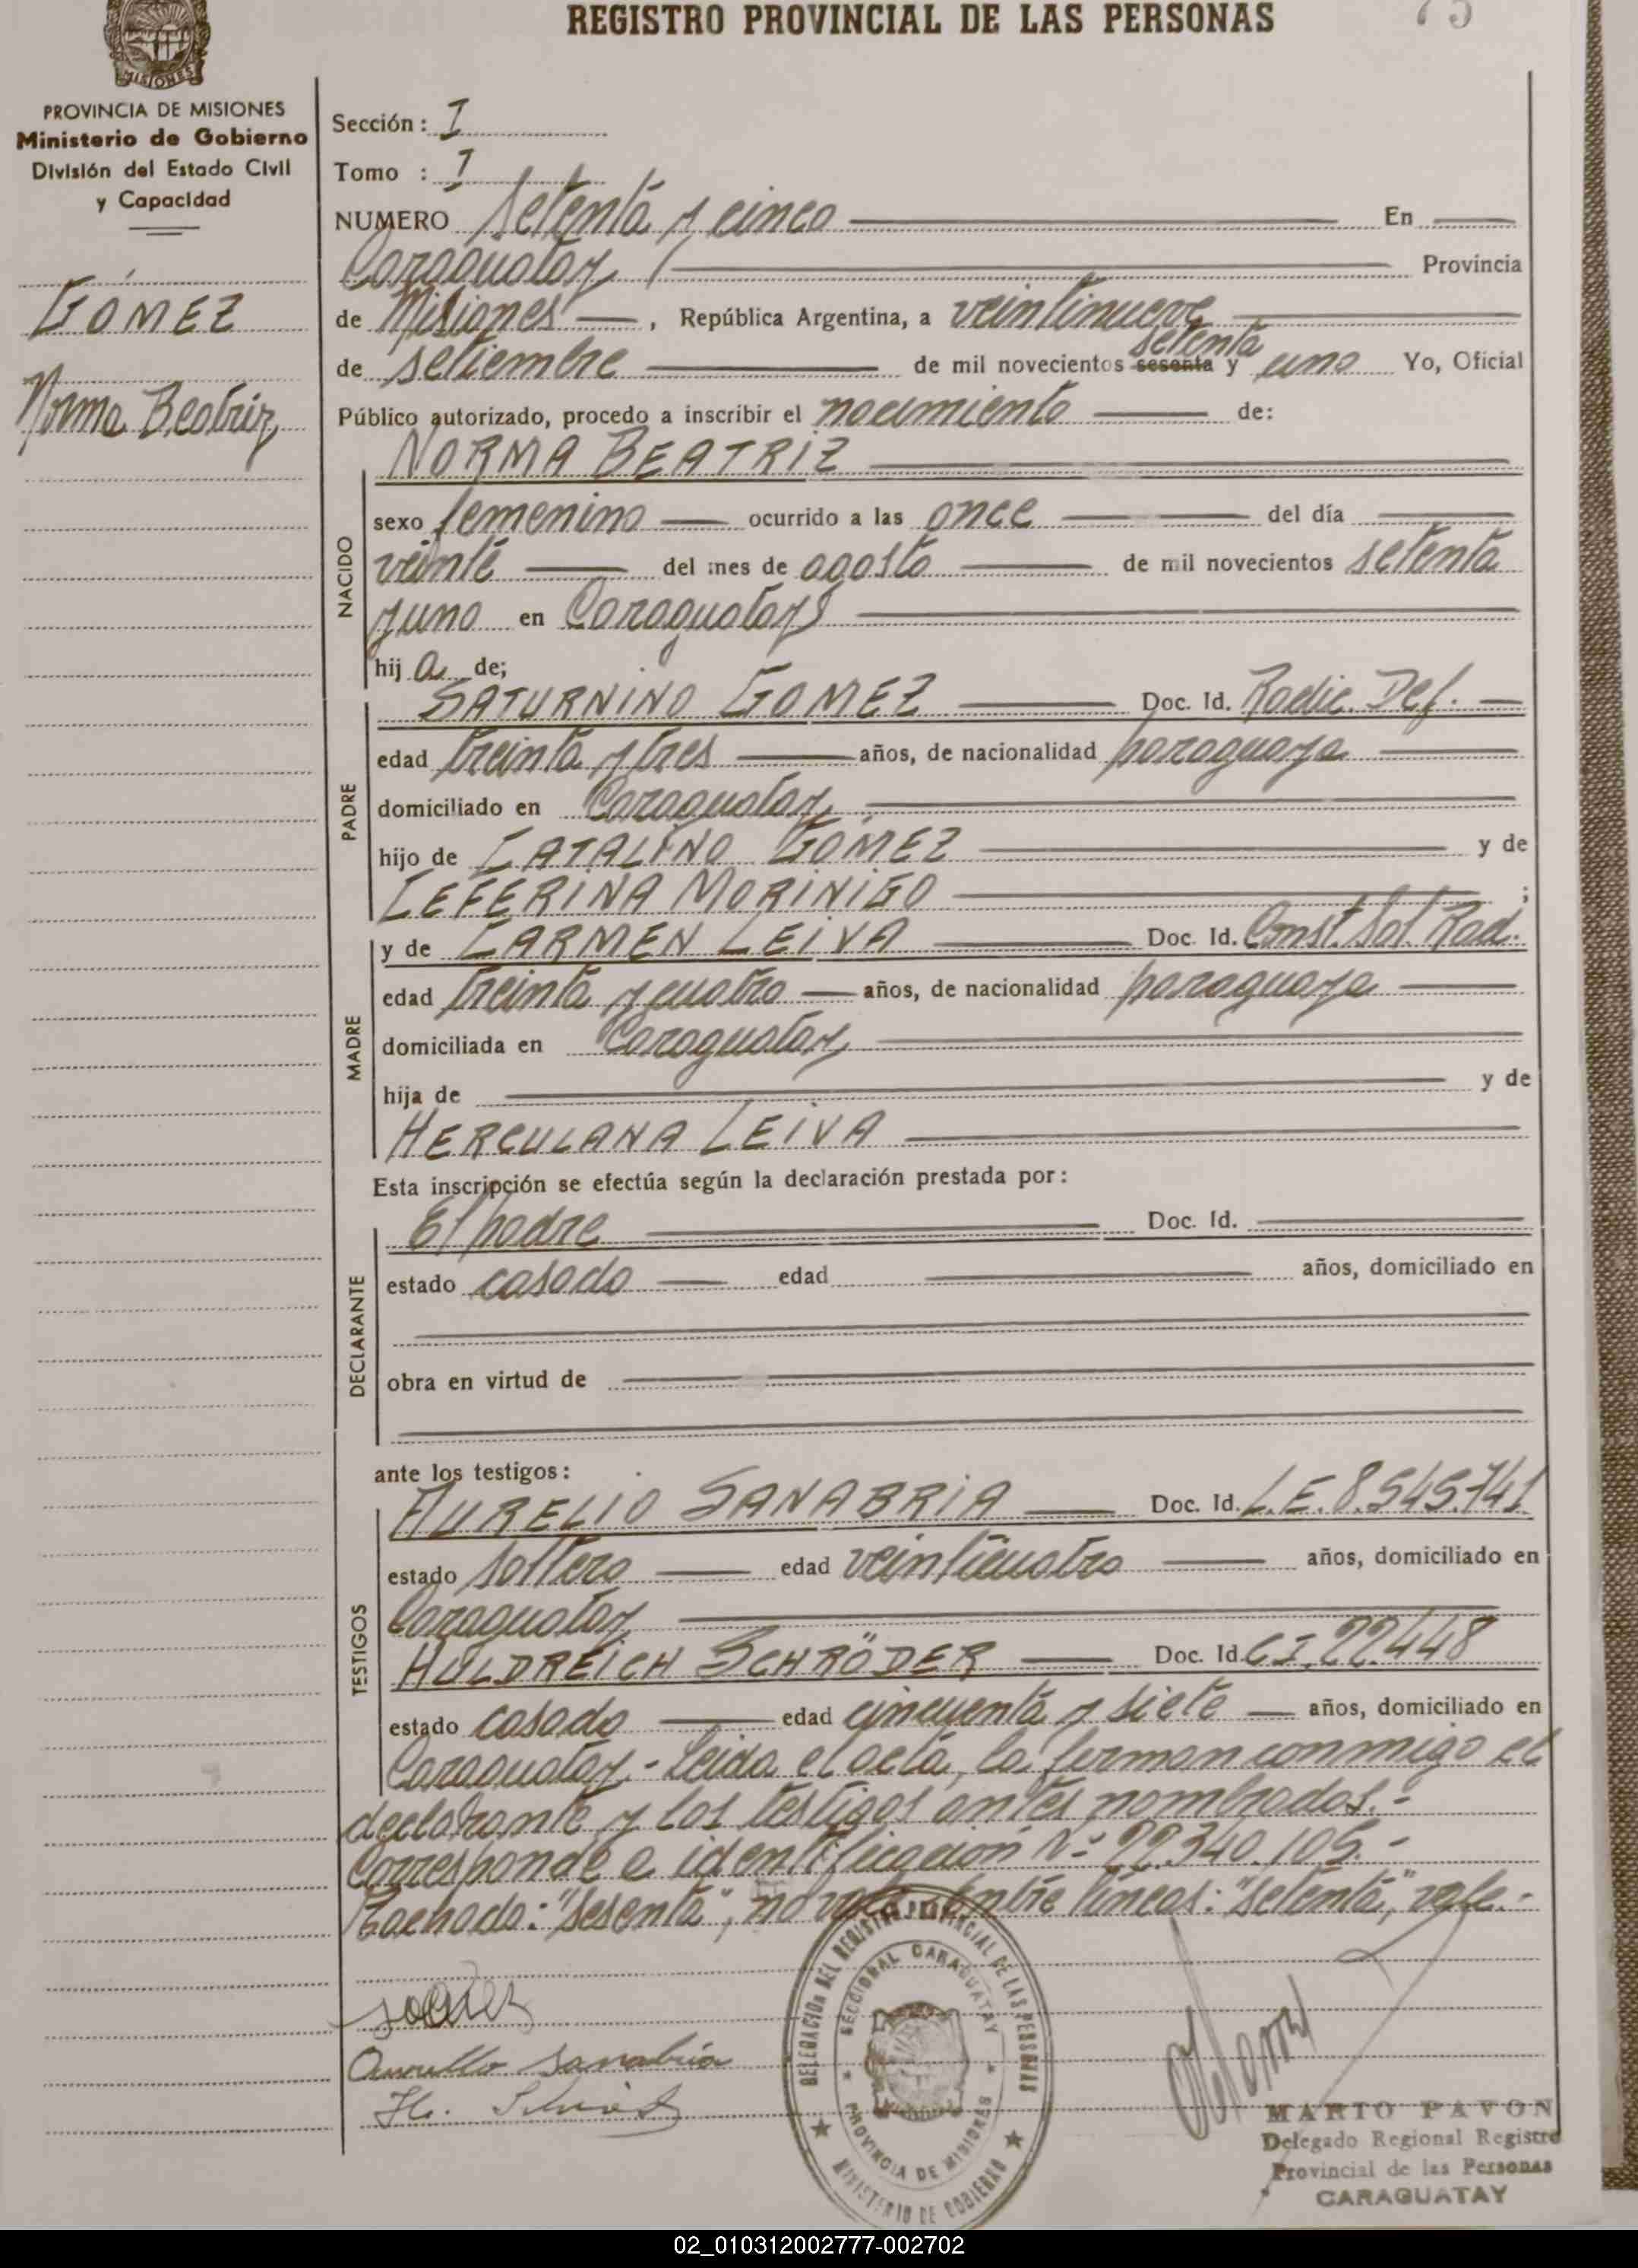 REGISTRO PROVINCIAL DE LAS PERSONAS
75
MISIONES
PROVINCIA DE MISIONES
Ministerio de Gobierno
División del Estado Civil
y Capacidad
GOMEZ
Norma Beatriz
Sección: I
Tomo : I
NUMERO setenta y cinco En
Caraguatay Provincia
de Misiones, República Argentina, a veintinueve
setenta
de setiembre de mil novecientos sesenta y uno Yo, Oficial
Público autorizado, procedo a inscribir el nacimiento de:
NORMA BEATRIZ
NACIDO
sexo femenino ocurrido a las once del día
veinte del mes de agosto de mil novecientos setenta
y uno en Caraguatay
hij a de;
PADRE
SATURNINO GOMEZ Doc. Id. Radic. Def.
edad treinta y tres años, de nacionalidad paraguaya
domiciliado en Caraguatay
hijo de CATALINO GOMEZ y de
CEFERINA MORINIGO ;
MADRE
y de CARMEN LEIVA Doc. Id. Const. Sol. Rad.
edad treinta y cuatro años, de nacionalidad paraguaya
domiciliada en Caraguatay
hija de y de
HERCULANA LEIVA
Esta inscripción se efectúa según la declaración prestada por:
DECLARANTE
El padre Doc. Id.
estado casado edad años, domiciliado en
obra en virtud de
ante los testigos:
TESTIGOS
AURELIO SANABRIA Doc. Id. L.E. 8.545.741
estado soltero edad veinticuatro años, domiciliado en
Caraguatay
HULDREICH SCHRÖDER Doc. Id. C.I. 22.448
estado casado edad cincuenta y siete años, domiciliado en
Caraguatay.- Leida el acta, la firman conmigo el
declarante y los testigos antes nombrados.-
Corresponde a identificacion Nº 22.340.105.-
Tachado: "sesenta", no vale. Entre lineas: "setenta", vale.-
Aurelio Sanabria
DELEGACION DEL REGISTRO PROVINCIAL DE LAS PERSONAS
SECCIONAL CARAGUATAY
PROVINCIA DE MISIONES
MINISTERIO DE GOBIERNO
MARIO PAVON
Delegado Regional Registro
Provincial de las Personas
CARAGUATAY
02_010312002777-002702